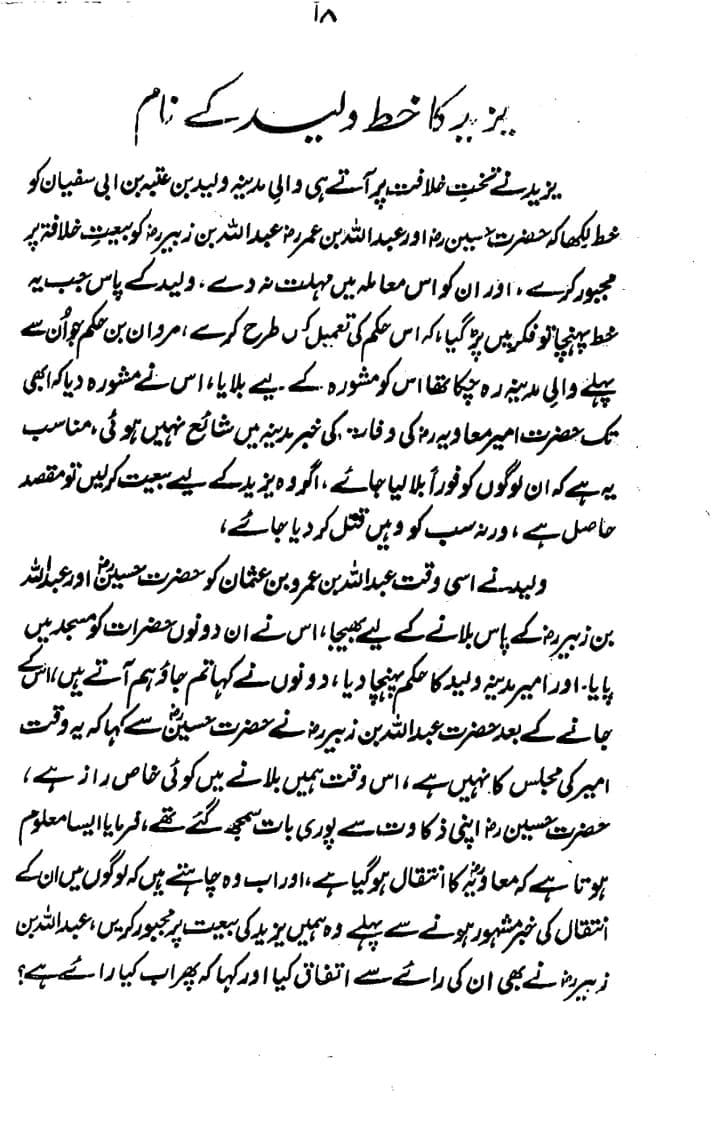 ۱۸
یزید کا خط ولید کے نام
یزید نے تختِ خلافت پر آتے ہی والیٔ مدینہ ولید بن عتبہ بن ابی سفیان کو
خط لکھا کہ حضرت حسینؓ اور عبداللہ بن عمرؓ عبداللہ بن زبیرؓ کو بیعتِ خلافۃ پر
مجبور کرے ، اور ان کو اس معاملہ میں مہلت نہ دے ، ولید کے پاس جب یہ
خط پہنچا تو فکر میں پڑ گیا ، کہ اس حکم کی تعمیل کس طرح کرے ، مروان بن حکم جو اُن سے
پہلے والیٔ مدینہ رہ چکا تھا اس کو مشورہ کے لیے بلایا ، اس نے مشورہ دیا کہ ابھی
تک حضرت امیر معاویہؓ کی وفات کی خبر مدینہ میں شائع نہیں ہوئی ، مناسب
یہ ہے کہ ان لوگوں کو فوراً بلا لیا جائے ، اگر وہ یزید کے لیے بیعت کر لیں تو مقصد
حاصل ہے ، ورنہ سب کو وہیں قتل کر دیا جائے ،
ولید نے اسی وقت عبداللہ بن عمرو بن عثمان کو حضرت حسینؓ اور عبداللہ
بن زبیرؓ کے پاس بلانے کے لیے بھیجا ، اس نے ان دونوں حضرات کو مسجد میں
پایا ۔ اور امیر مدینہ ولید کا حکم پہنچا دیا ، دونوں نے کہا تم جاؤ ہم آتے ہیں ، اس کے
جانے کے بعد حضرت عبداللہ بن زبیرؓ نے حضرت حسینؓ سے کہا کہ یہ وقت
امیر کی مجلس کا نہیں ہے ، اس وقت ہمیں بلانے میں کوئی خاص راز ہے ،
حضرت حسینؓ اپنی ذکاوت سے پوری بات سمجھ گئے تھے ، فرمایا ایسا معلوم
ہوتا ہے کہ معاویہؓ کا انتقال ہو گیا ہے ، اور اب وہ چاہتے ہیں کہ لوگوں میں ان کے
انتقال کی خبر مشہور ہونے سے پہلے وہ ہمیں یزید کی بیعت پر مجبور کریں ، عبداللہ بن
زبیرؓ نے بھی ان کی رائے سے اتفاق کیا اور کہا کہ پھر اب کیا رائے ہے ؟